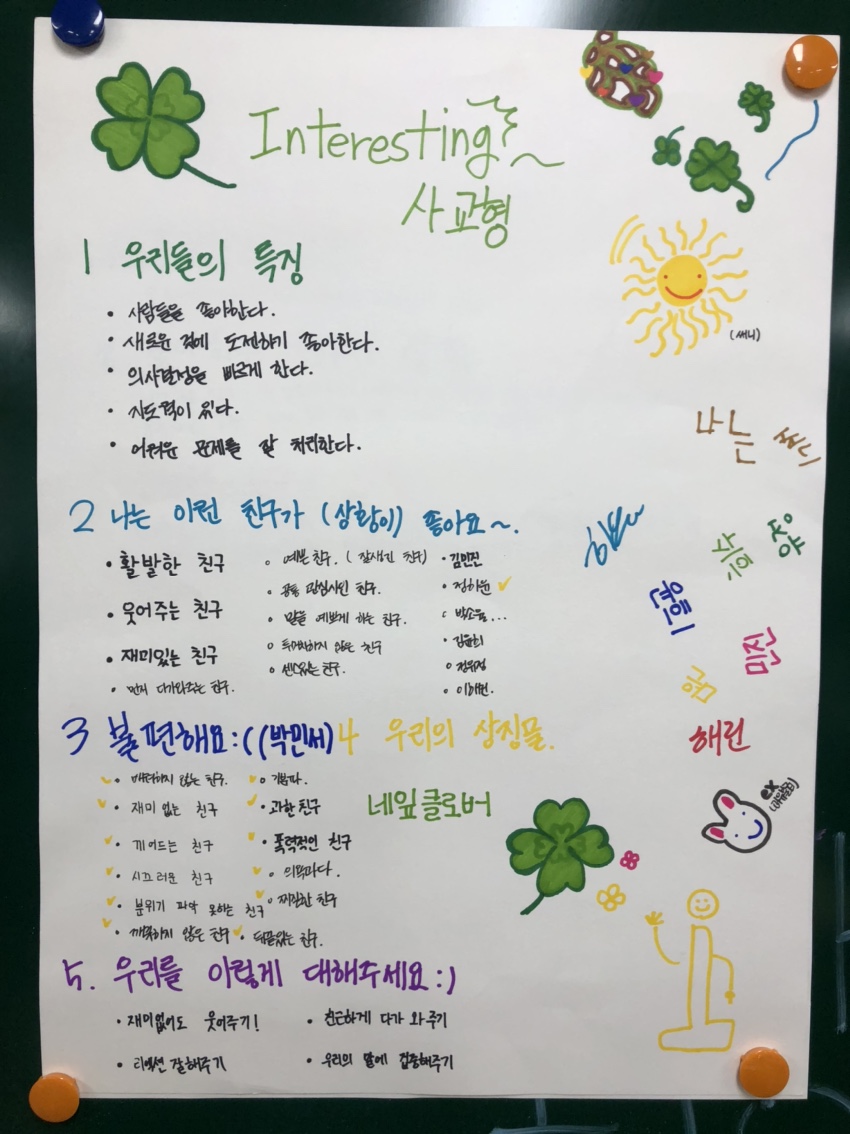 Interesting~
사교형
1 우리들의 특징
• 사람들을 좋아한다.
• 새로운 것에 도전하기 좋아한다.
• 의사결정을 빠르게 한다.
• 지도력이 있다.
• 어려운 문제를 잘 처리한다.
(써니)
나는 써니
2 나는 이런 친구가 (상황이) 좋아요~.
• 활발한 친구
• 웃어주는 친구
• 재미있는 친구
• 먼저 다가와주는 친구.
◦ 예쁜 친구. (잘생긴 친구)
◦ 공통 관심사인 친구.
◦ 말을 예쁘게 하는 친구.
◦ 투덜대지 않은 친구
◦ 센스있는 친구.
• 김민진
• 정하윤 ✓
• 박소율...
• 김윤희
• 이해런.
윤희
해런
3 불편해요:((박민서)
• 배려하지 않는 친구.
• 재미 없는 친구
• 끼어드는 친구
• 시끄러운 친구
• 분위기 파악 못하는 친구
• 깨끗하지 않은 친구
• 과한 친구
• 폭력적인 친구
• 찌질한 친구
• 뒤끝있는 친구.
4 우리의 상징물.
네잎클로버
ex
5. 우리를 이렇게 대해주세요:)
• 재미없어도 웃어주기!
• 리액션 잘해주기
• 친근하게 다가 와주기
• 우리의 말에 집중해주기